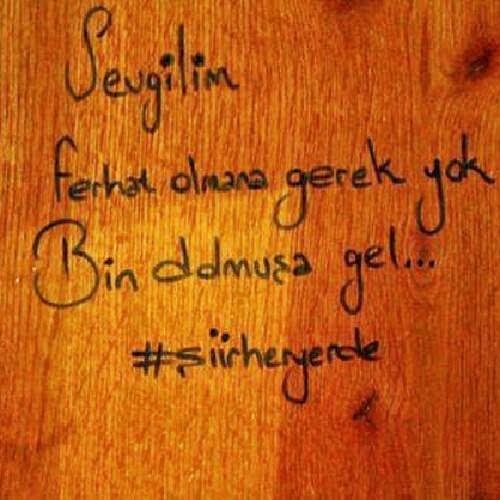 Sevgilim
Ferhat olmana gerek yok
Bin ddmuşa gel...
#şiirheryerde